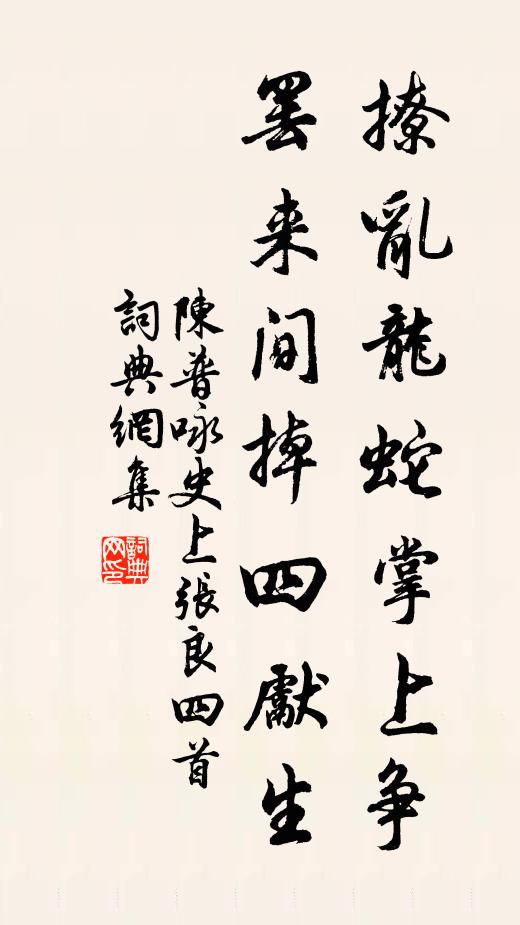 撩亂龍蛇掌上争
罢来间掉四獻生
陳普咏史上張良四首
詞典網集
詞典网印